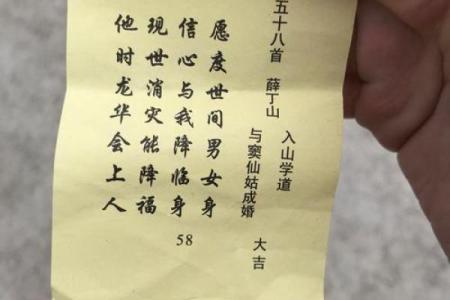 五十八首 薛丁山
入山学道
与窦仙姑成婚
大吉
愿度世间男女身
信心与我降临身
现世消灾能降福
他时龙华会上人
58